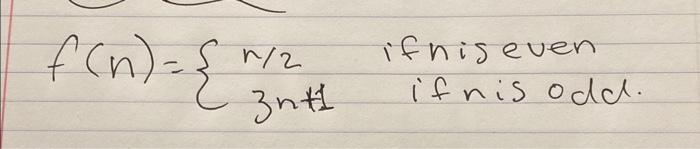 f(n)={ n/2 if n is even
3n+1 if n is odd.